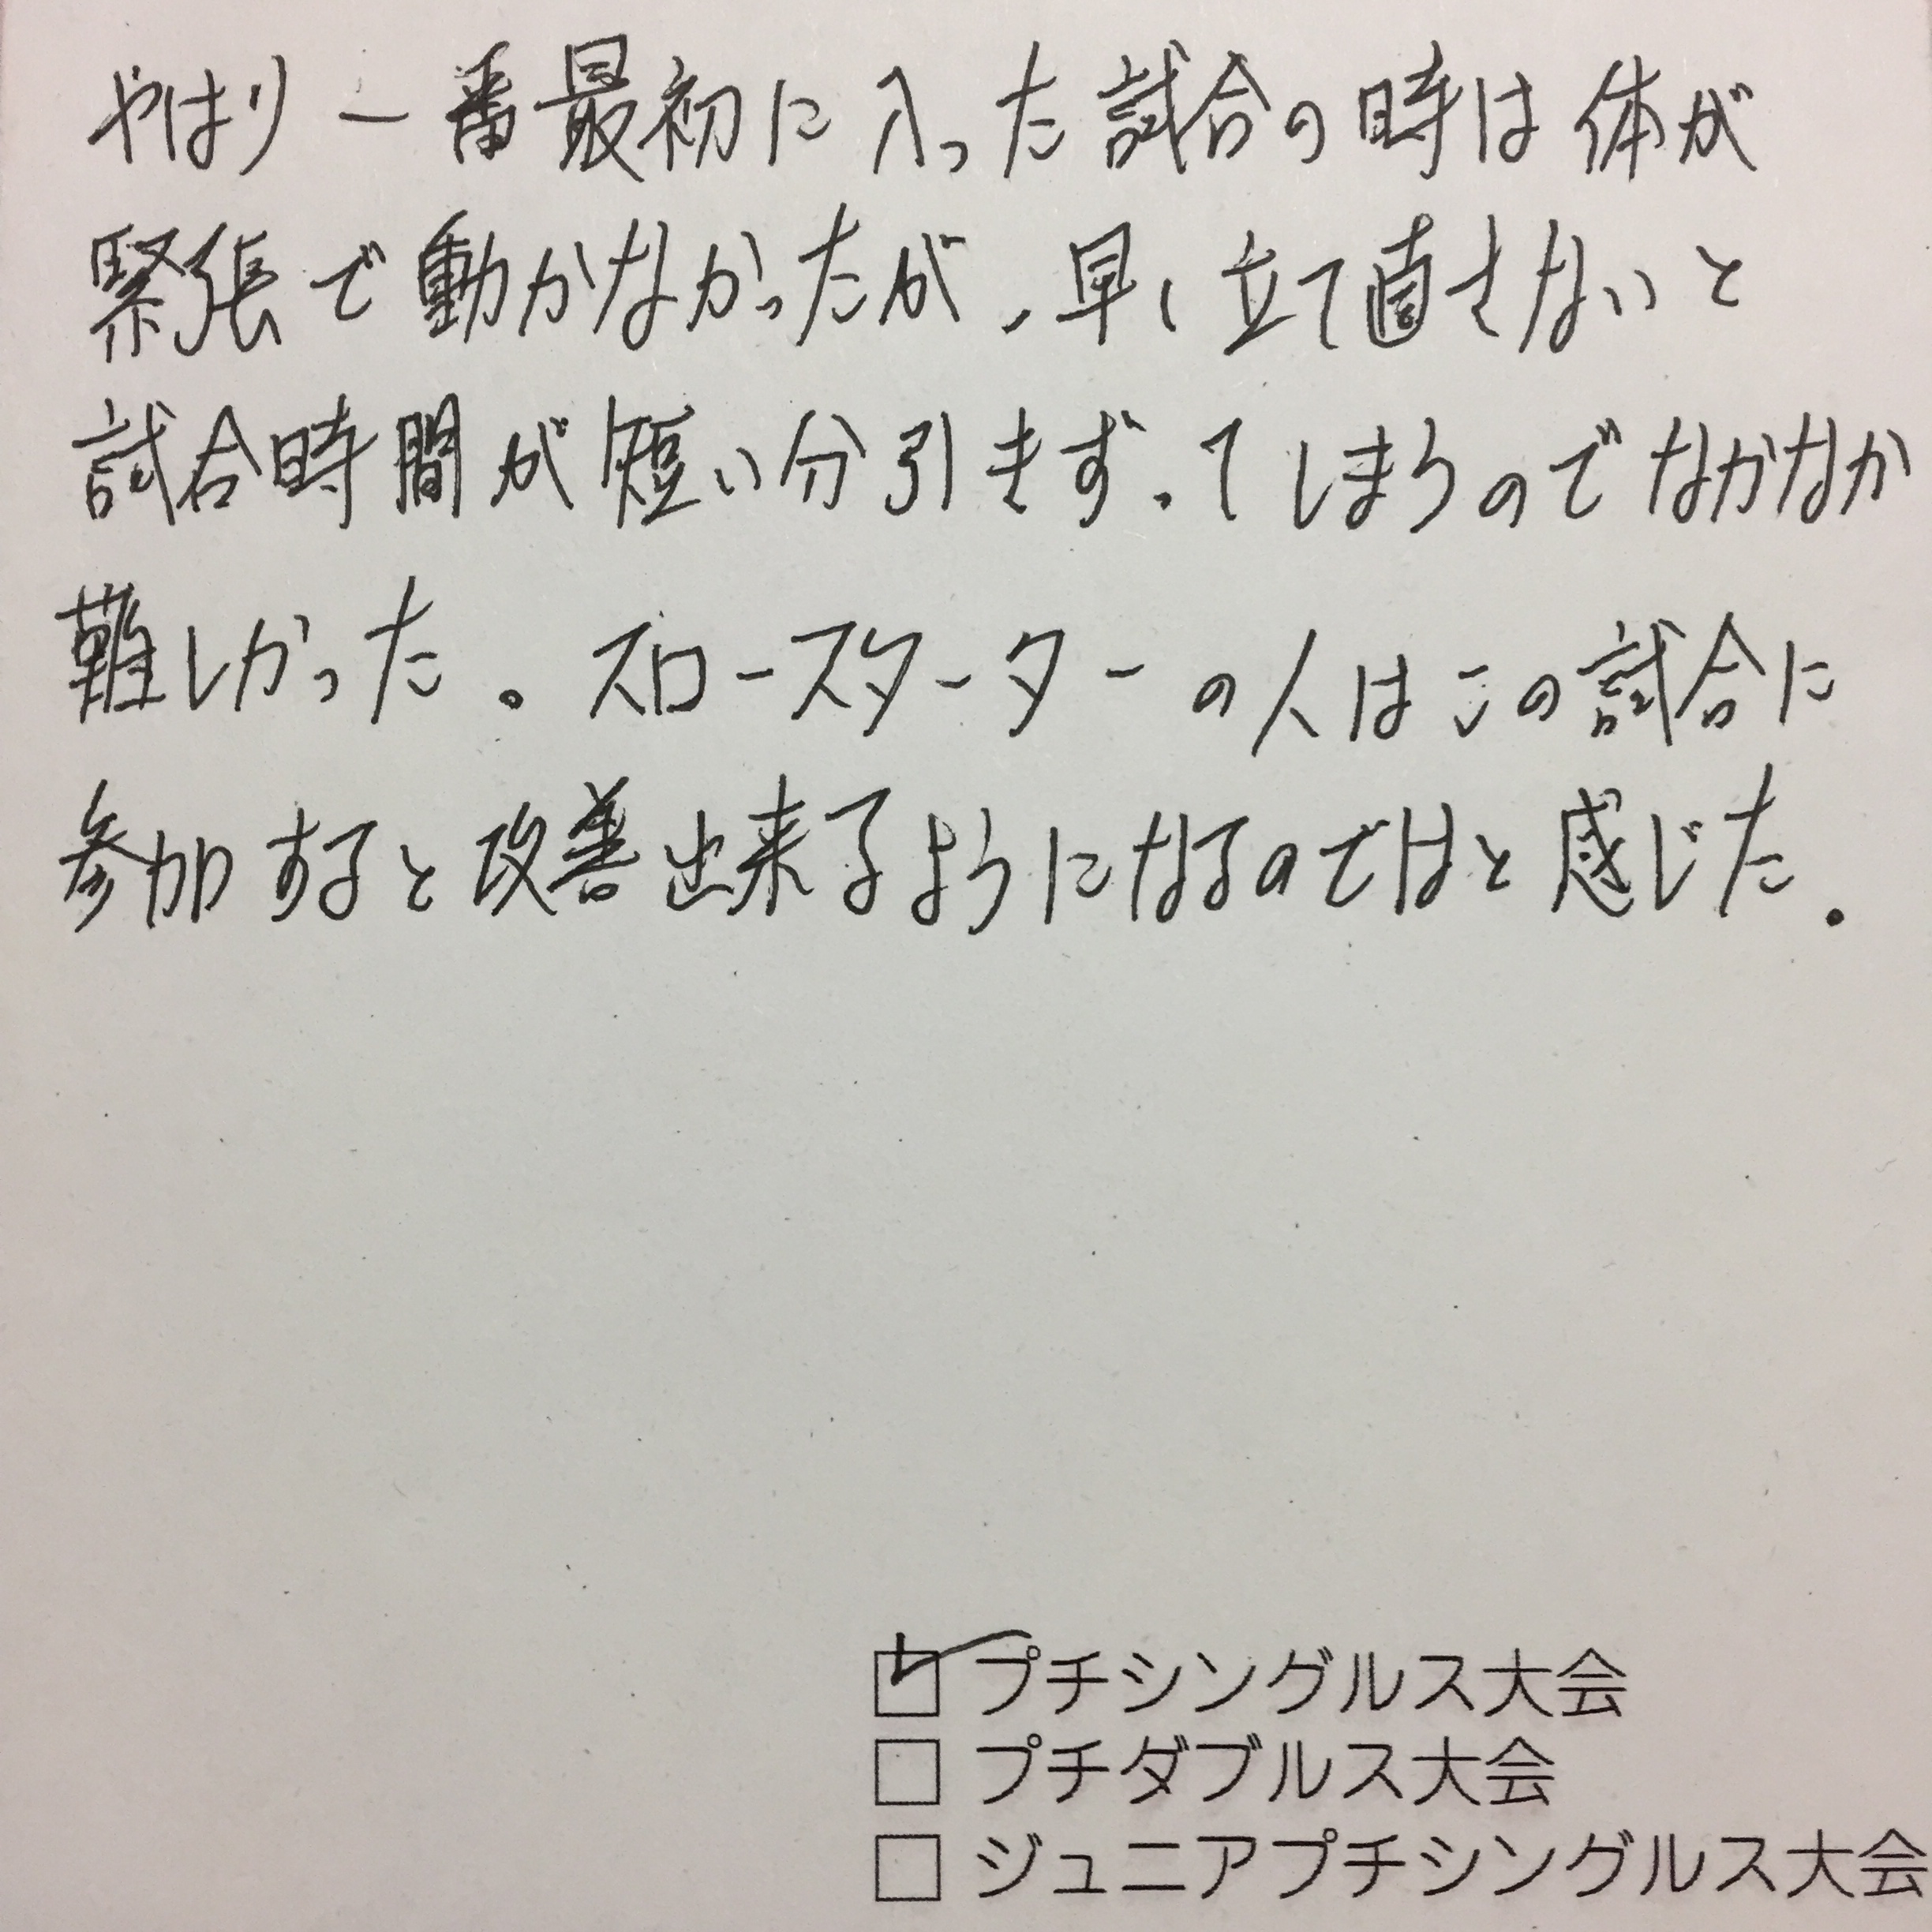 やはり一番最初に入った試合の時は体が
緊張で動かなかったが、早く立て直さないと
試合時間が短い分引きずってしまうのでなかなか
難しかった。スロースターターの人はこの試合に
参加すると改善出来るようになるのではと感じた。
☑ プチシングルス大会
□ プチダブルス大会
□ ジュニアプチシングルス大会